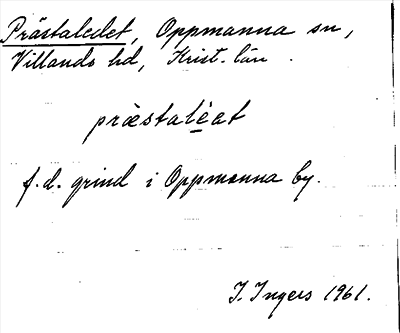 Prästaledet, Oppmanna sn,
Villands hd, Krist. län.
præstaléat
f.d. grind i Oppmanna by.
I. Ingers 1961.